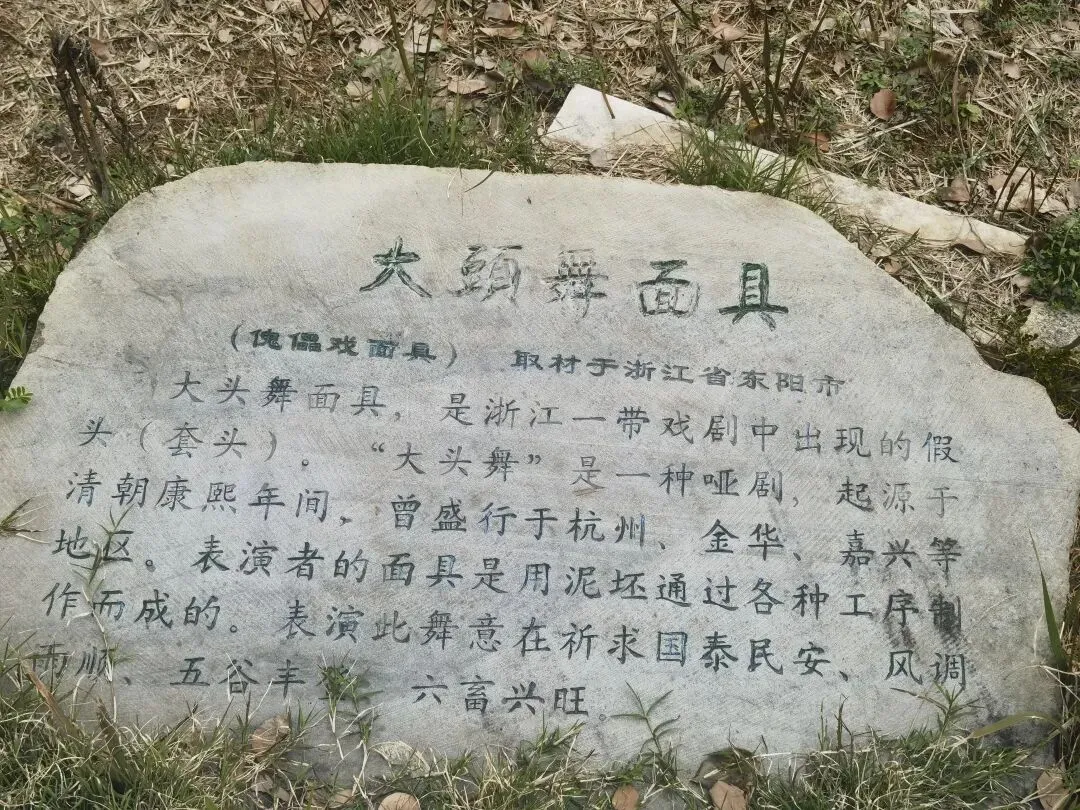 大頭舞面具
（傀儡戏面具） 取材于浙江省东阳市
大头舞面具，是浙江一带戏剧中出现的假
头（套头）。“大头舞”是一种哑剧，起源于
清朝康熙年间，曾盛行于杭州、金华、嘉兴等
地区。表演者的面具是用泥坯通过各种工序制
作而成的。表演此舞意在祈求国泰民安、风调
雨顺、五谷丰 六畜兴旺。